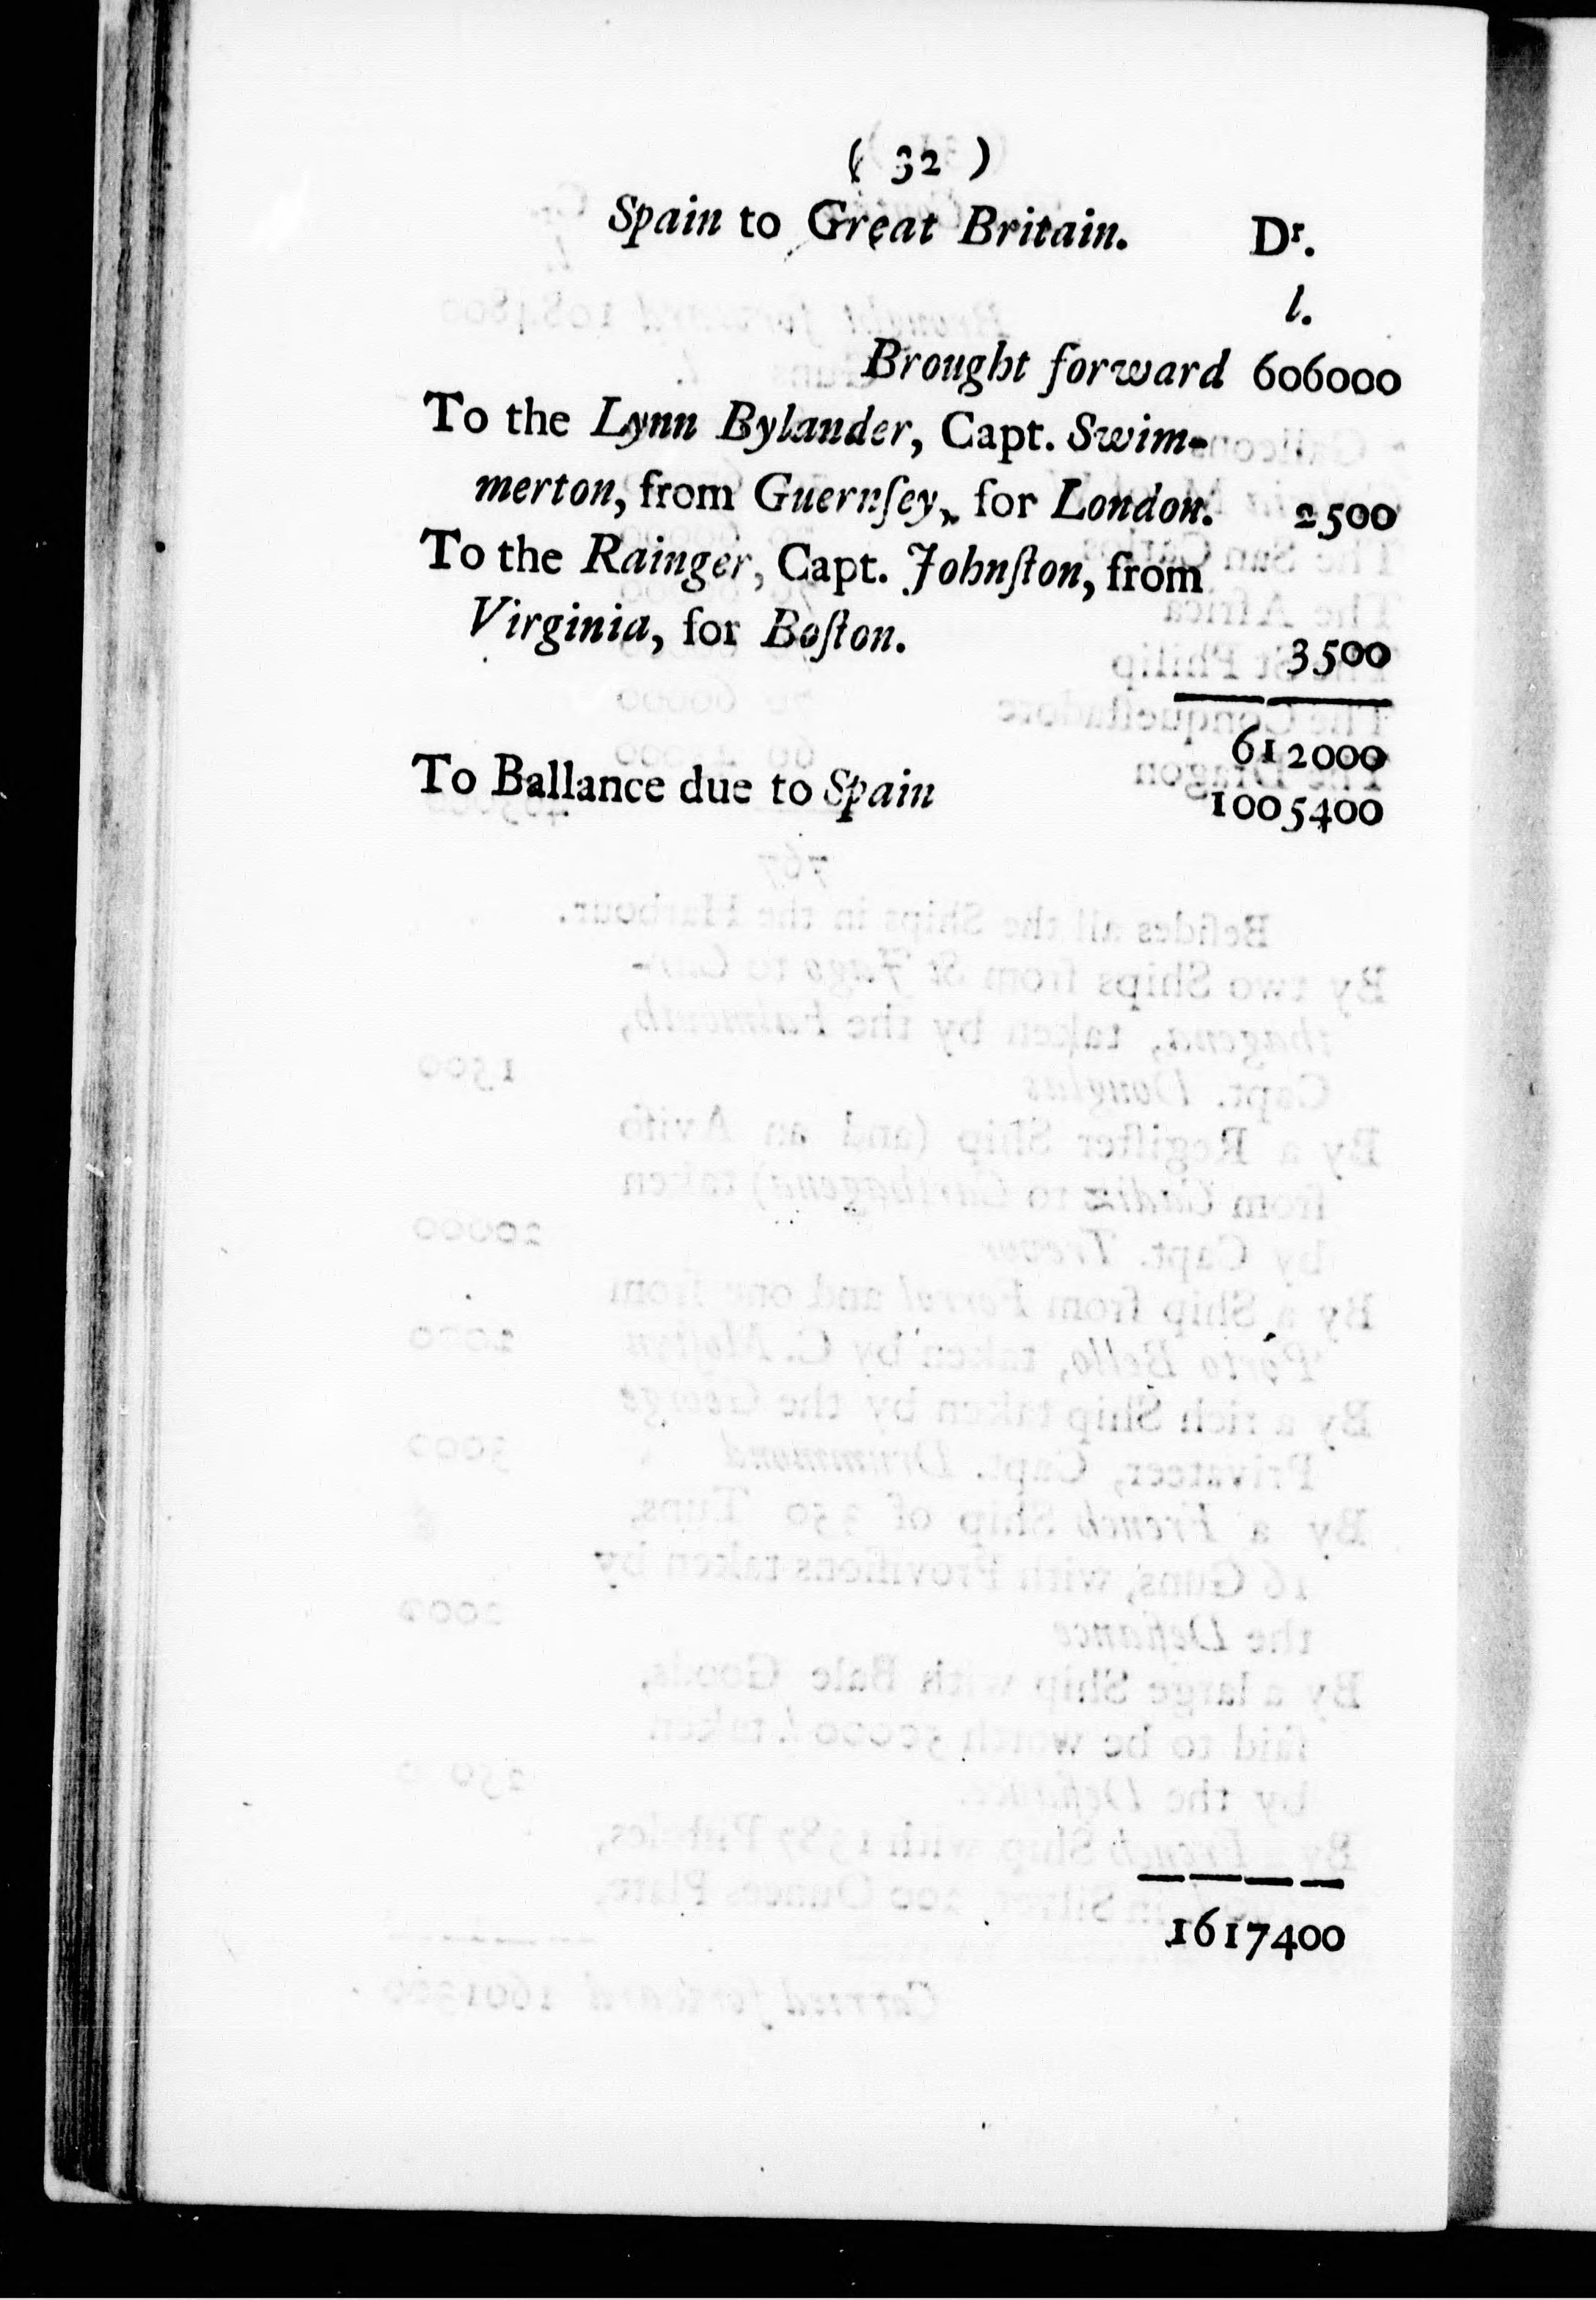 ( 32 )
Spain to Great Britain. Dr.
l.
Brought forward 606000
To the Lynn Bylander, Capt. Swim-
merton, from Guernſey, for London. 2500
To the Rainger, Capt. Johnſton, from
Virginia, for Boſton. 3500
612000
To Ballance due to Spain 1005400
1617400